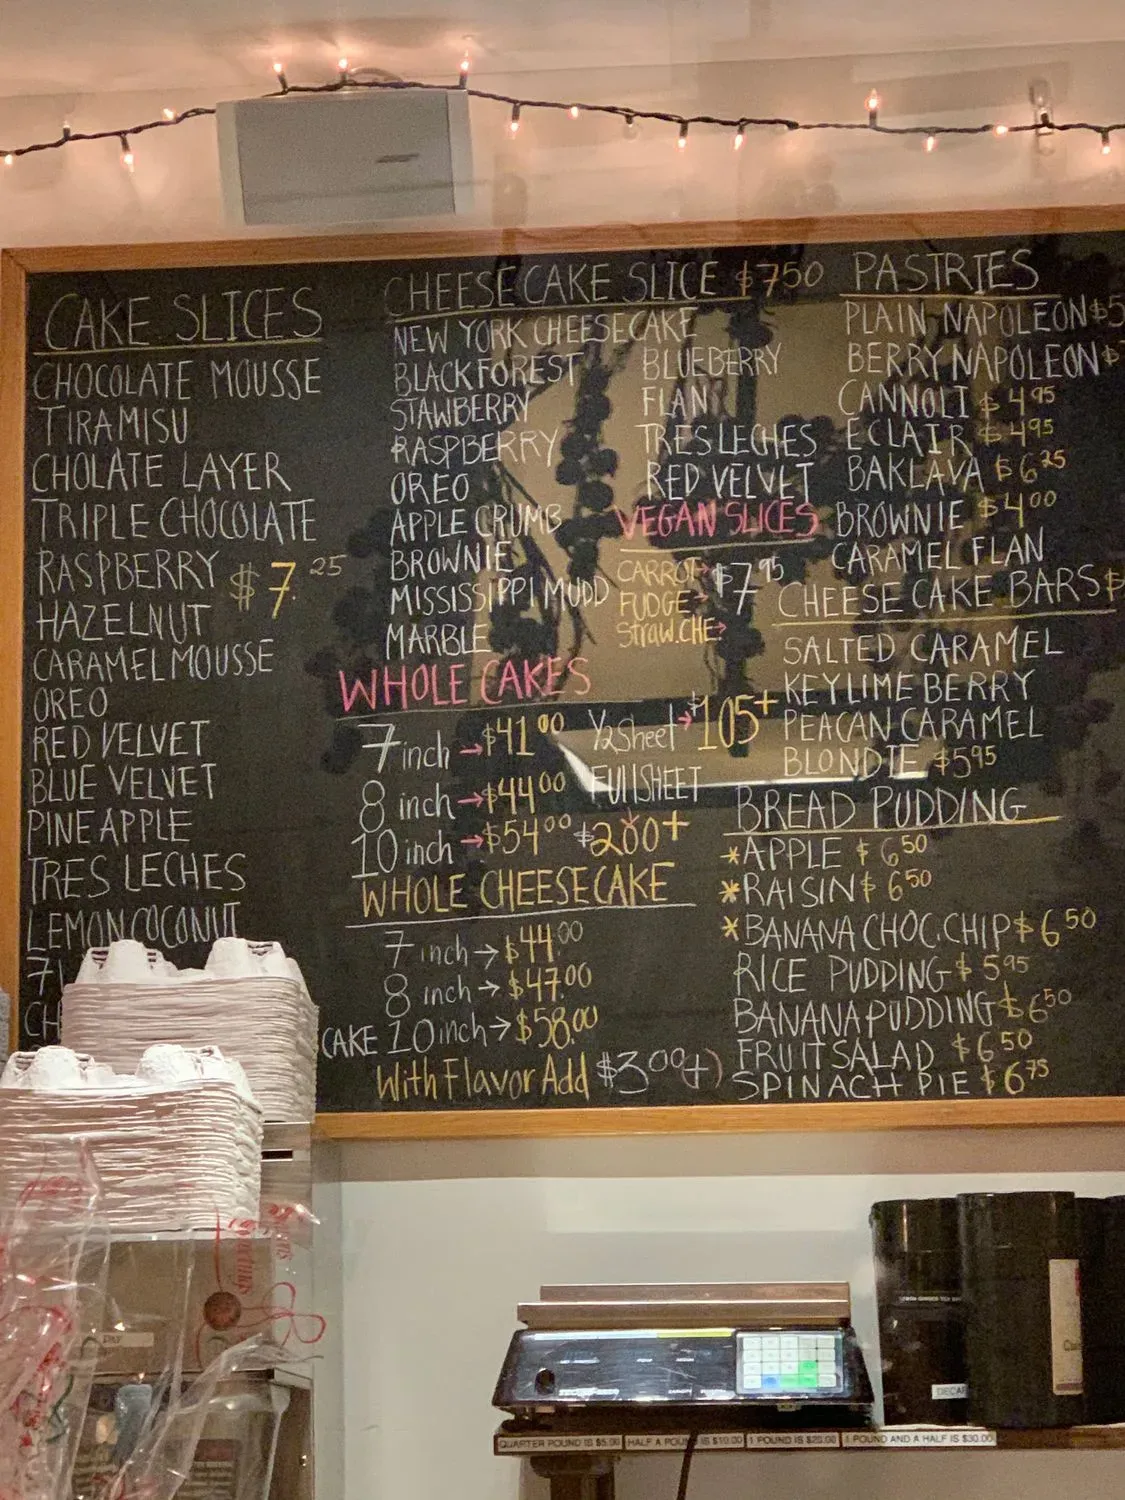 CAKE SLICES
CHOCOLATE MOUSSE
TIRAMISU
CHOLATE LAYER
TRIPLE CHOCOLATE
RASPBERRY $7.25
HAZELNUT
CARAMEL MOUSSE
OREO
RED VELVET
BLUE VELVET
PINEAPPLE
TRES LECHES
LEMON COCONUT
CHEESECAKE SLICE $750
NEW YORK CHEESECAKE
BLACKFOREST
STAWBERRY
RASPBERRY
OREO
APPLE CRUMB
BROWNIE
MISSISSIPPI MUDD
MARBLE
BLUEBERRY
FLAN
TRES LECHES
RED VELVET
VEGAN SLICES
CARROT→ $7 95
FUDGE→
Straw.CHE→
WHOLE CAKES
7 inch → $41 00
8 inch → $44 00
10 inch → $54 00
1/2 Sheet → $105+
FUll SHEET
$200+
WHOLE CHEESECAKE
7 inch → $44.00
8 inch → $47.00
CAKE 10 inch → $58.00
With Flavor Add $3.00(+)
PASTRIES
PLAIN NAPOLEON $5
BERRY NAPOLEON $
CANNOLI $4 95
ECLAIR $4 95
BAKLAVA $6 25
BROWNIE $4 00
CARAMEL FLAN
CHEESE CAKE BARS $
SALTED CARAMEL
KEYLIME BERRY
PEACAN CARAMEL
BLONDIE $5 95
BREAD PUDDING
*APPLE $6 50
*RAISIN $6 50
*BANANA CHOC.CHIP $6 50
RICE PUDDING $5 95
BANANA PUDDING $6 50
FRUIT SALAD $6 50
SPINACH PIE $6 75
DECAF
QUARTER POUND IS $5.00
HALF A POUND IS $10.00
1 POUND IS $20.00
1 POUND AND A HALF IS $30.00